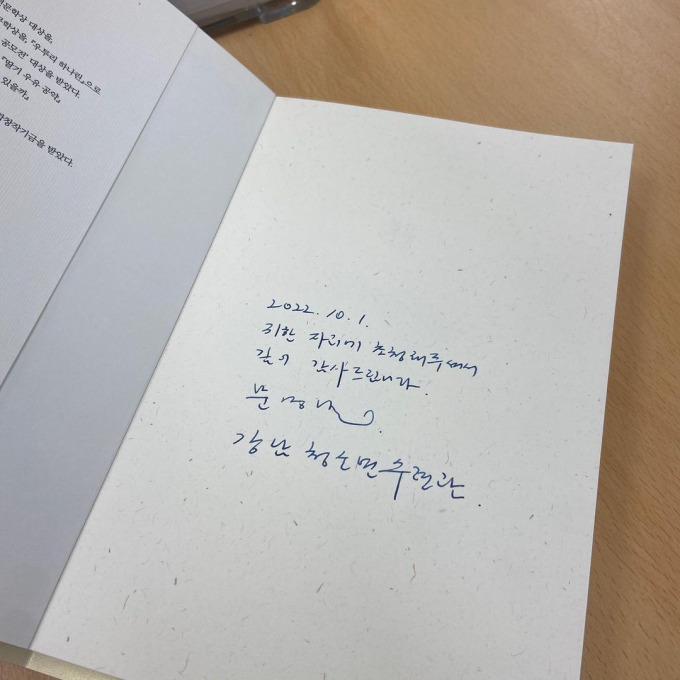 문학상 대상을,
학상을, 『우투리 하나린』으로
공모전' 대상을 받았다.
『딸기 우유 공약』
있을까』
창작기금을 받았다.
2022. 10. 1.
귀한 자리에 초청해주셔서
깊이 감사드립니다.
문경민.
강남 청소년수련관.